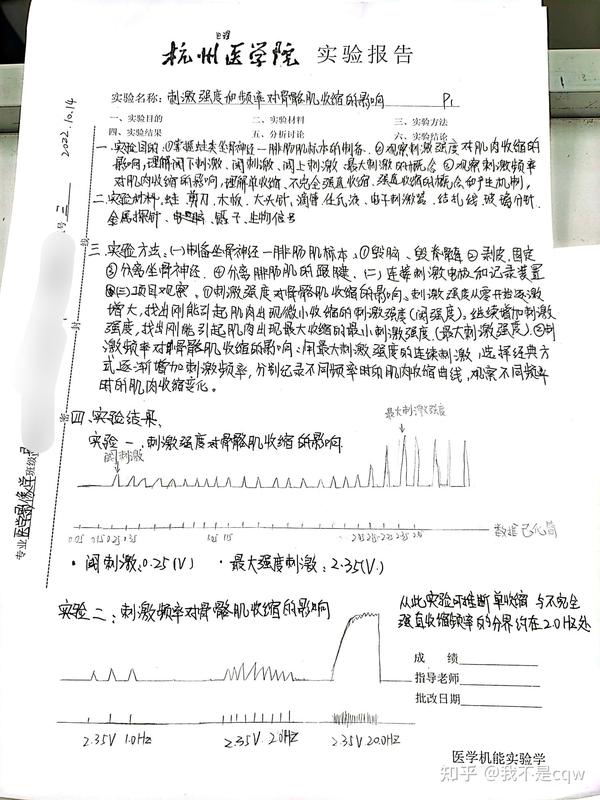 杭州医学院 实验报告
实验名称:刺激强度和频率对骨骼肌收缩的影响 P1
一、实验目的 二、实验材料 三、实验方法
四、实验结果 五、分析讨论 六、实验结论
2022.10.14
一、实验目的:①掌握蛙类坐骨神经一腓肠肌标本的制备.②观察刺激强度对肌肉收缩的
影响,理解阈下刺激、阈刺激、阈上刺激、最大刺激的概念 ③观察刺激频率
对肌肉收缩的影响,理解单收缩、不完全强直收缩、强直收缩的概念和产生机制。
二、实验材料:蛙 剪刀、木板、大头针、滴管 任氏液、电子刺激器、结扎线 玻璃分针.
金属探针、镊子、生物信号
三、实验方法:(一)制备坐骨神经一腓肠肌标本.①毁脑、毁脊髓②剥皮.固定
③分离坐骨神经.④分离腓肠肌的跟腱、(二)连接刺激电极和记录装置
(三)项目观察.①刺激强度对骨骼肌收缩的影响。刺激强度从零开始逐渐
增大,找出刚能引起肌肉出现微小收缩的刺激强度(阈强度).继续增加刺激
强度,找出刚能引起肌肉出现最大收缩的最小刺激强度.(最大刺激强度).②刺
激频率对骨骼肌收缩的影响:用最大刺激强度的连续刺激,选择经典方
式逐渐增加刺激频率,分别记录不同频率时的肌肉收缩曲线,观察不同频率
时的肌肉收缩变化。
四、实验结果.
最大刺激强度
实验一:刺激强度对骨骼肌收缩的影响
阈刺激
0.05 0.15 0.25 0.35
数据已化简
·阈刺激:0.25(V) ·最大强度刺激:2.35(V)
实验二:刺激频率对骨骼肌收缩的影响
从此实验可推断单收缩与不完全
强直收缩频率的分界约在2.0Hz处
成 绩
指导老师
批改日期
2.35V 1.0Hz 2.35V 2.0Hz 2.35V 20.0Hz
医学机能实验学
专业 医学影像学 班级
号 三
密 封 线
知乎 @我不是cqw